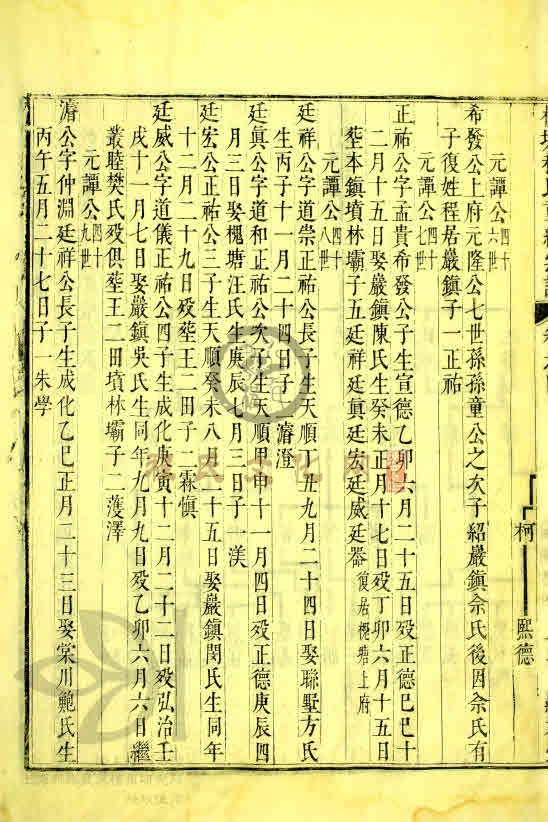 柯
熙德
元譚公四十六世
希發公上府元隆公七世孫孫童公之次子紹巖鎮佘氏後因佘氏有
子復姓程居巖鎮子一正祐
元譚公四十七世
正祐公字孟貴希發公子生宣德乙卯六月二十五日歿正德己巳十
二月十五日娶巖鎮陳氏生癸未正月十七日歿丁卯六月十五日
塟本鎮墳林壩子五廷祥廷眞廷宏廷威廷器復居槐塘上府
元譚公四十八世
廷祥公字道崇正祐公長子生天順丁丑九月二十四日娶聯墅方氏
生丙子十一月二十四日子二濬澄
廷眞公字道和正祐公次子生天順甲申十一月四日歿正德庚辰四
月三日娶槐塘汪氏生庚辰七月三日子一渼
廷宏公正祐公三子生天順癸未八月二十五日娶巖鎮閔氏生同年
十二月二十九日歿塟王二田子二霖愼
廷威公字道儀正祐公四子生成化庚寅十二月二十二日歿弘治壬
戌十一月七日娶巖鎮吳氏生同年九月九日歿乙卯六月六日繼
叢睦樊氏歿俱塟王二田墳林壩子二蒦澤
元譚公四十九世
濬公字仲淵廷祥公長子生成化乙巳正月二十三日娶棠川鮑氏生
丙午五月二十七日子一朱學